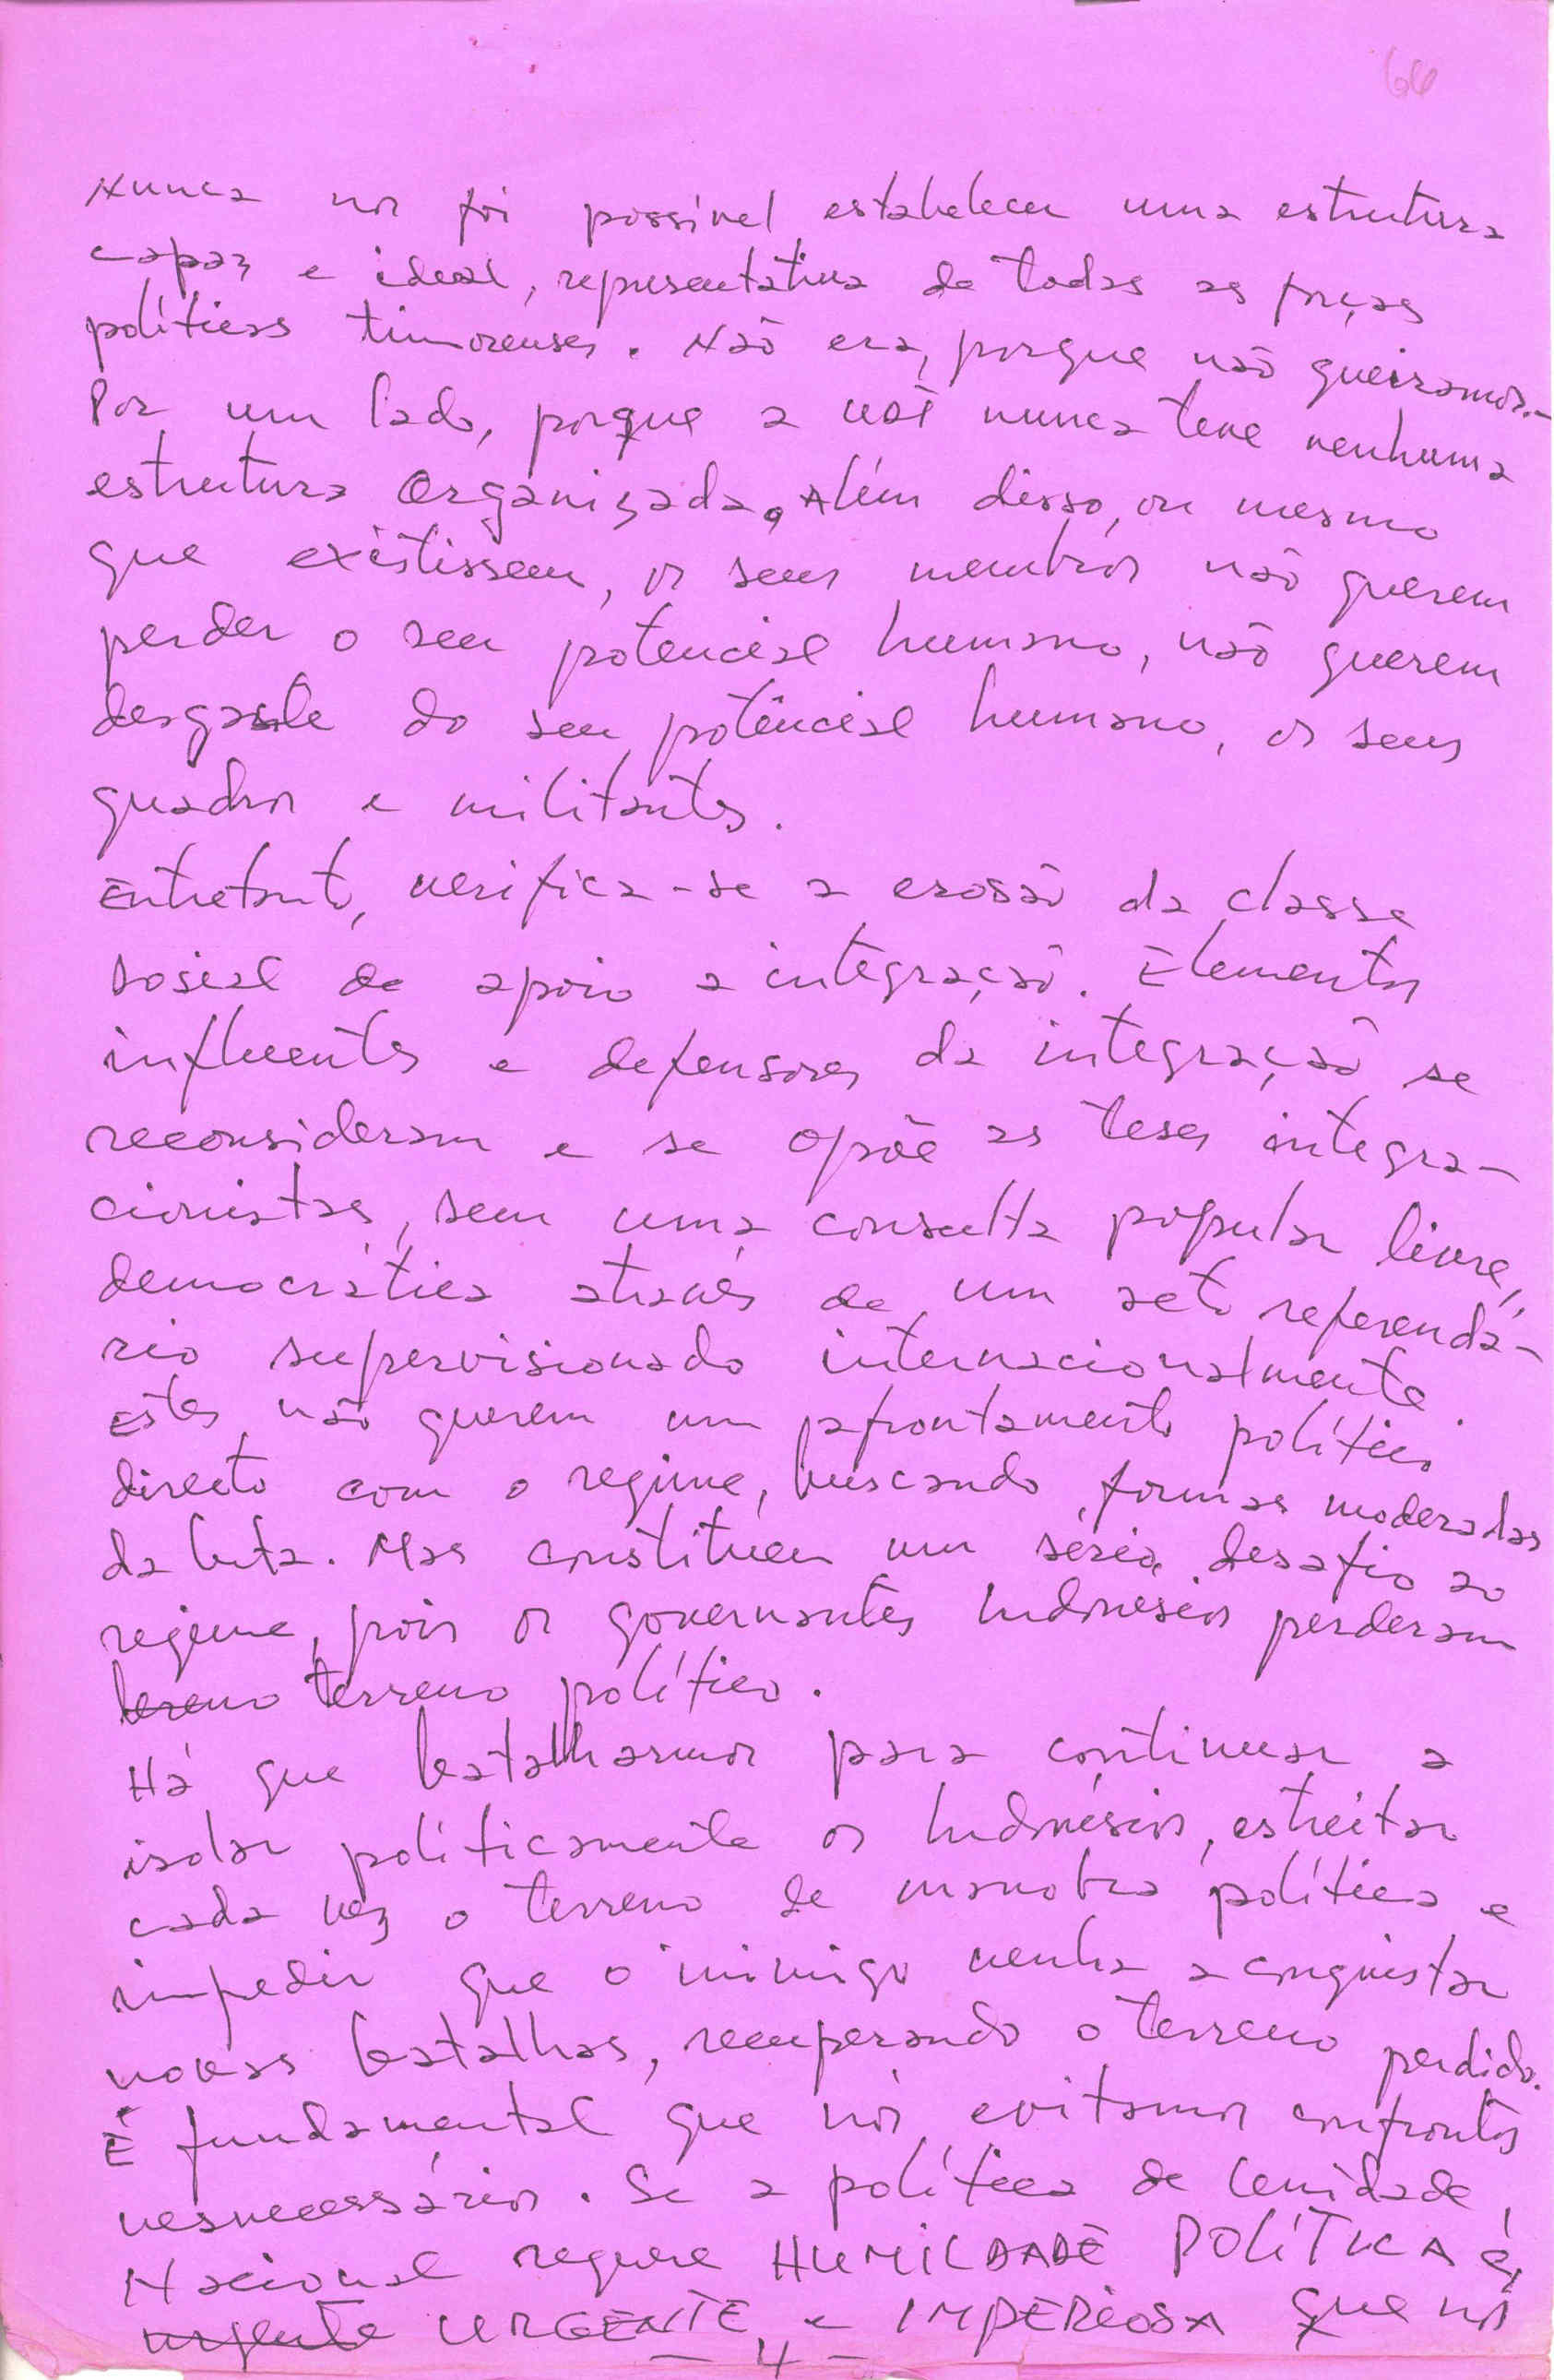 Nunca nos foi possível estabelecer uma estrutura
capaz e ideal, representativa de todas as forças
políticas timorenses. Não era, porque não queiramos.-
Por um lado, porque a UDT nunca teve nenhuma
estrutura organizada. Além disso, ou mesmo
que existissem, os seus membros não querem
perder o seu potencial humano, não querem
desgaste do seu potêncial humano, os seus
quadros e militantes.
Entretanto, verifica-se a erosão da classe
sosial de apoio a integração. Elementos
influentes e defensores da integração se
reconsideram e se opõe as teses integra-
cionistas, sem uma consulta popular livre,
democrática através de um acto referendá-
rio supervisionado internacionalmente.
Estes não querem um afrontamento político
directo com o regime, buscando formas moderadas
da luta. Mas constituem um sério desafio ao
regime, pois os governantes Indonésios perderam
tereno terreno político.
Há que batalharmos para continuar a
isolar políticamente os Indonésios, estreitar
cada vez o terreno de manobra política e
impedir que o inimigo venha a conquistar
novas batalhas, recuperando o terreno perdido.
É fundamental que nós evitamos confrontos
nesnecessários. Se a política de Unidade
Nacional requere HUMILDADE POLÍTICA é,
urgente URGENTE e IMPERIOSA que nós
- 4 -